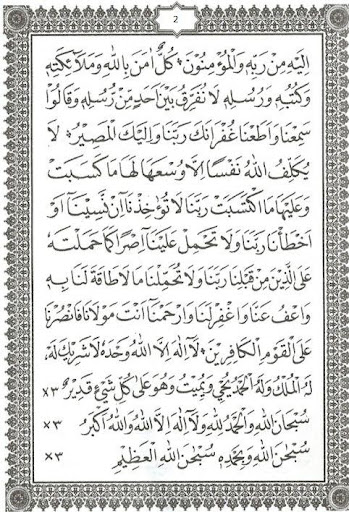 2
اِلَيْهِ مِنْ رَبِّهٖ وَالْمُؤْمِنُوْنَ ۞ كُلٌّ اٰمَنَ بِاللّٰهِ وَمَلٰٓئِكَتِهٖ
وَكُتُبِهٖ وَرُسُلِهٖ لَا نُفَرِّقُ بَيْنَ اَحَدٍ مِّنْ رُسُلِهٖ وَقَالُوْا
سَمِعْنَا وَاَطَعْنَا غُفْرَانَكَ رَبَّنَا وَاِلَيْكَ الْمَصِيْرُ ۞ لَا
يُكَلِّفُ اللّٰهُ نَفْسًا اِلَّا وُسْعَهَا لَهَا مَا كَسَبَتْ
وَعَلَيْهَا مَا اكْتَسَبَتْ رَبَّنَا لَا تُؤَاخِذْنَا اِنْ نَّسِيْنَا اَوْ
اَخْطَأْنَا رَبَّنَا وَلَا تَحْمِلْ عَلَيْنَا اِصْرًا كَمَا حَمَلْتَهٗ
عَلَى الَّذِيْنَ مِنْ قَبْلِنَا رَبَّنَا وَلَا تُحَمِّلْنَا مَا لَا طَاقَةَ لَنَا بِهٖ
وَاعْفُ عَنَّا وَاغْفِرْ لَنَا وَارْحَمْنَا اَنْتَ مَوْلَانَا فَانْصُرْنَا
عَلَى الْقَوْمِ الْكَافِرِيْنَ ۞ لَا اِلٰهَ اِلَّا اللّٰهُ وَحْدَهٗ لَا شَرِيْكَ لَهٗ
لَهُ الْمُلْكُ وَلَهُ الْحَمْدُ يُحْيِيْ وَيُمِيْتُ وَهُوَ عَلٰى كُلِّ شَيْءٍ قَدِيْرٌ ۞ ×٣
سُبْحَانَ اللّٰهِ وَالْحَمْدُ لِلّٰهِ وَلَا اِلٰهَ اِلَّا اللّٰهُ وَاللّٰهُ اَكْبَرُ ×٣
سُبْحٰنَ اللّٰهِ وَبِحَمْدِهٖ سُبْحٰنَ اللّٰهِ الْعَظِيْمِ ×٣